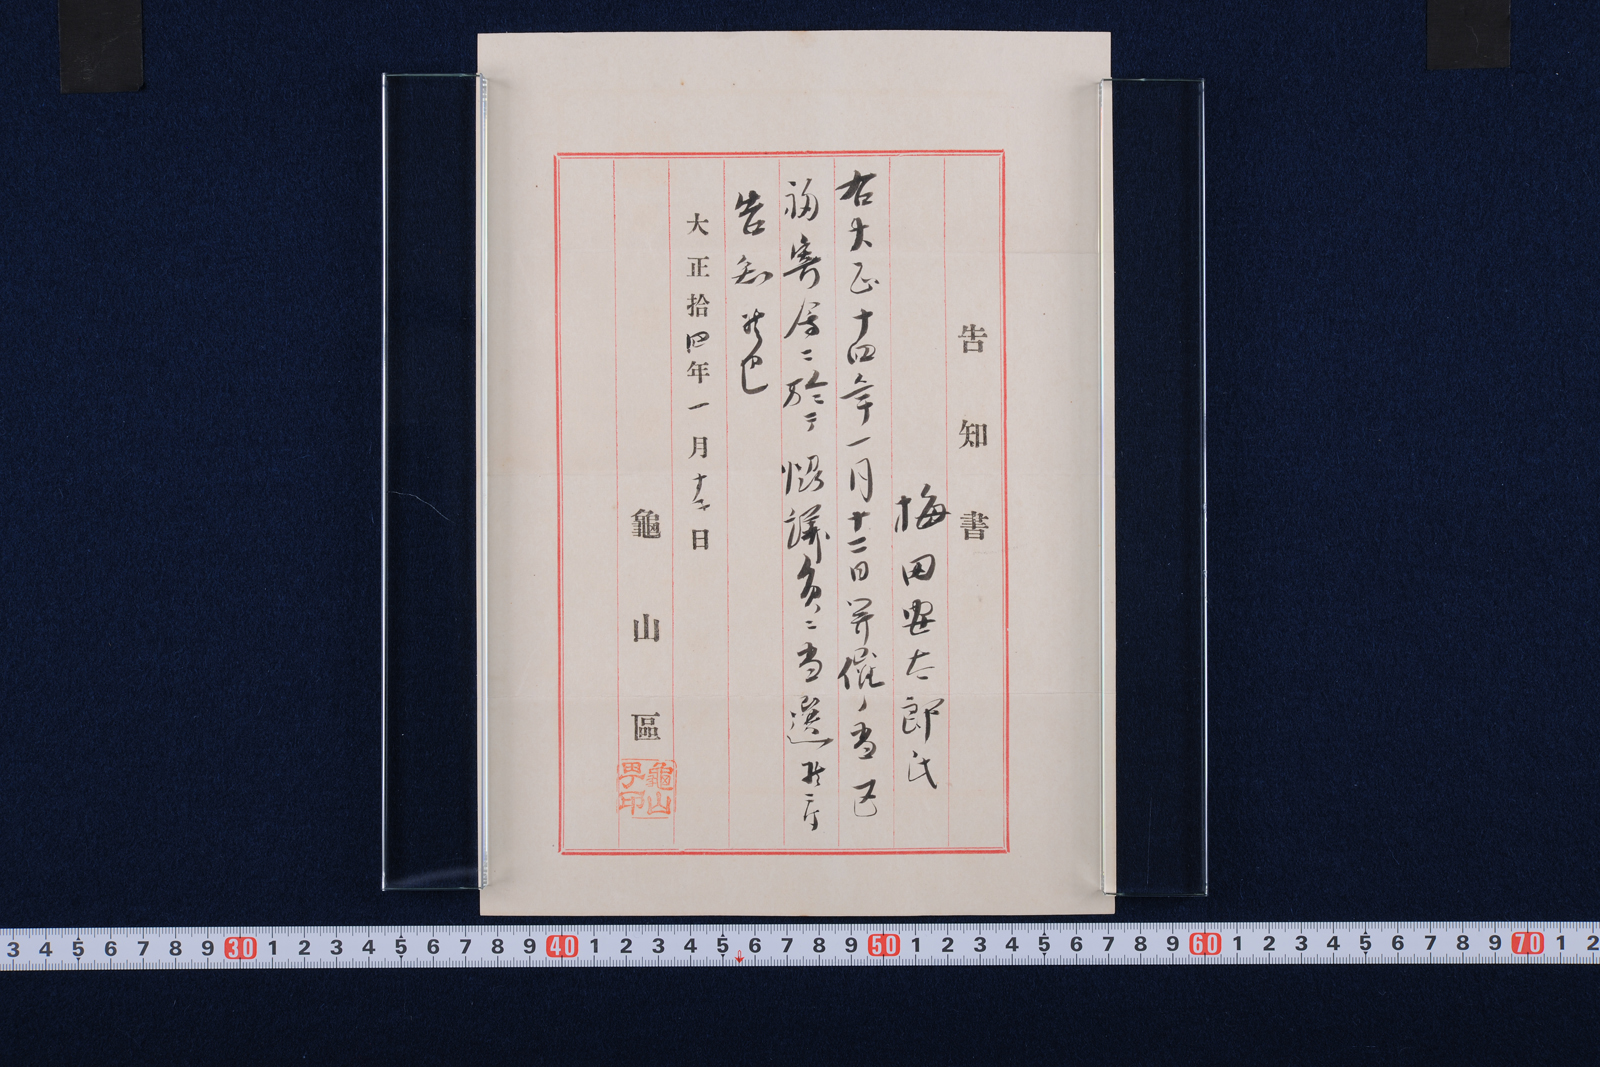 告知書
梅田太郎氏
右大正十四年一月十二日開催ノ当区
初寄ニ於テ協議員ニ当選候ニ付
告知候也
大正拾四年一月十日
龜山區
龜山
印
3 4 5 6 7 8 9 30 1 2 3 4 5 6 7 8 9 40 1 2 3 4 5 6 7 8 9 50 1 2 3 4 5 6 7 8 9 60 1 2 3 4 5 6 7 8 9 70 1 2